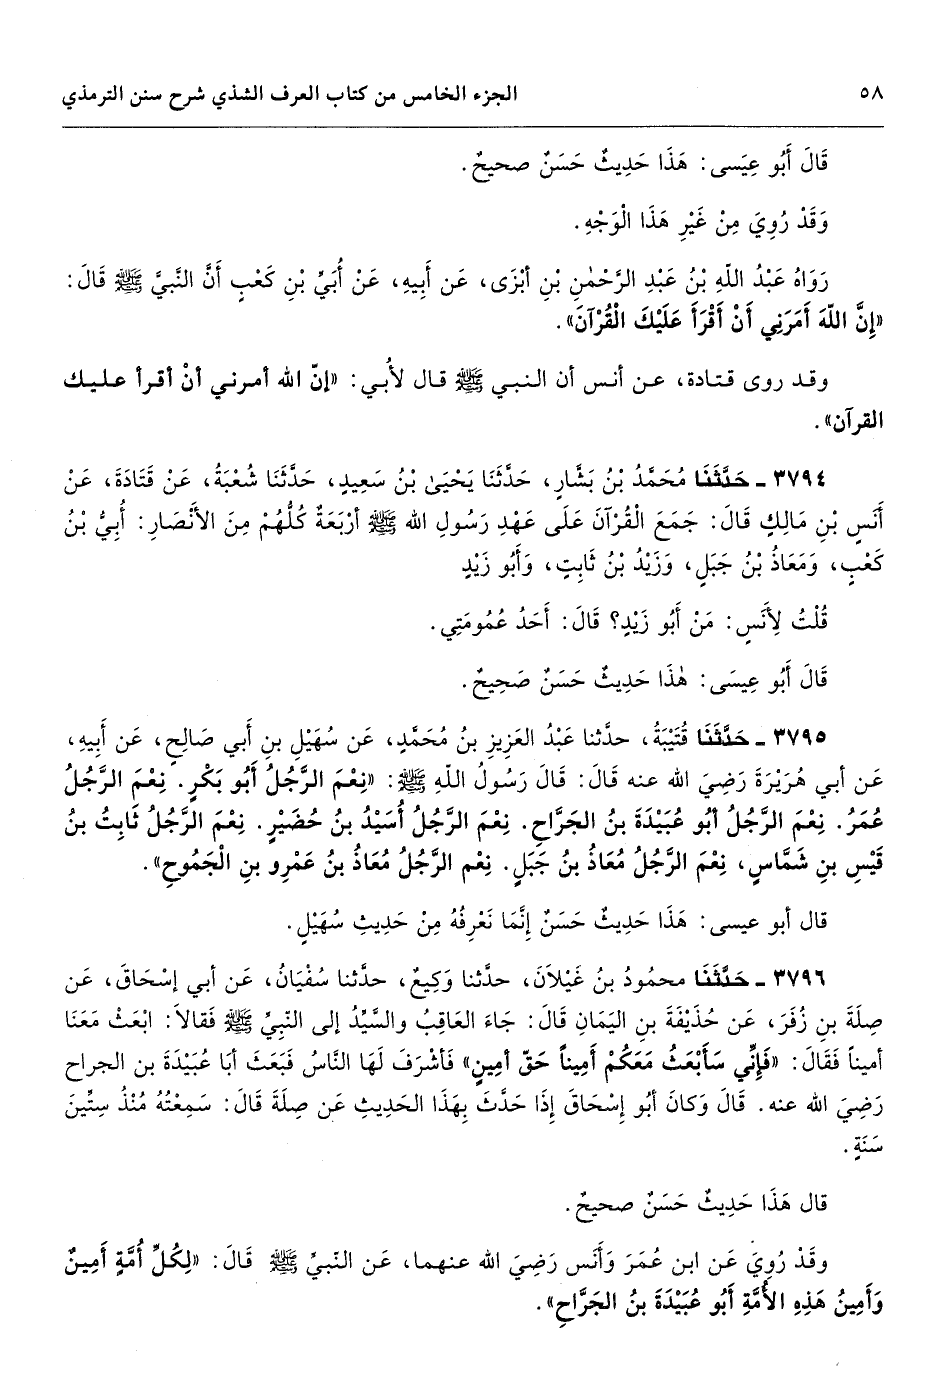 ٥٨ الجزء الخامس من كتاب العرف الشذي شرح سنن الترمذي
قَالَ أَبُو عِيَسى: هَذَا حَدِيثٌ حَسَنٌ صحيحٌ.
وَقَدْ رُوِيَ مِنْ غَيْرِ هَذَا الْوَجْهِ.
رَوَاهُ عَبْدُ اللّهِ بْنُ عَبْدِ الرَّحْمٰنِ بْنِ أبْزَى، عَن أَبِيهِ، عَنْ أُبَيِّ بْنِ كَعْبٍ أَنَّ النَّبيَّ ﷺ قَالَ:
«إِنَّ اللّهَ أَمَرَنِي أَنْ أَقْرَأَ عَلَيْكَ الْقُرْآنَ».
وقـد روى قـتـادة، عـن أنس أن الـنـبـي ﷺ قـال لأُبـي: «إنّ الله أمـرنـي أنْ أقـرأ عـلـيـك
القرآن».
٣٧٩٤ ـ حَدَّثَنَا مُحَمَّدُ بْنُ بَشَّارٍ، حَدَّثَنَا يَحْيَىٰ بْنُ سَعِيدٍ، حَدَّثَنَا شُعْبَةُ، عَنْ قَتَادَةَ، عَنْ
أَنَسِ بْنِ مَالِكٍ قَالَ: جَمَعَ الْقُرْآنَ عَلَى عَهْدِ رَسُولِ الله ﷺ أرْبَعَةٌ كُلُّهُمْ مِنَ الأَنْصَارِ: أُبيُّ بْنُ
كَعْبٍ، وَمَعَاذُ بْنُ جَبَلٍ، وَزَيْدُ بْنُ ثَابِتٍ، وَأَبُو زَيْدٍ
قُلْتُ لِأَنَسٍ: مَنْ أَبُو زَيْدٍ؟ قَالَ: أَحَدُ عُمُومَتِي.
قَالَ أَبُو عِيسَى: هٰذَا حَدِيثٌ حَسَنٌ صَحِيحٌ.
٣٧٩٥ ـ حَدَّثَنَا قُتَيْبَةُ، حدَّثنا عَبْدُ العَزِيزِ بنُ مُحَمَّدٍ، عَن سُهَيْلِ بنِ أبي صَالِحٍ، عَن أَبِيهِ،
عَن أبي هُرَيْرَةَ رَضِيَ الله عنه قَالَ: قَالَ رَسُولُ اللّهِ ﷺ: «نِعْمَ الرَّجُلُ أَبُو بَكْرٍ. نِعْمَ الرَّجُلُ
عُمَرُ. نِعْمَ الرَّجُلُ أبُو عُبَيْدَةَ بنُ الجَرَّاحِ. نِعْمَ الرَّجُلُ أُسَيْدُ بنُ حُضَيْرٍ. نِعْمَ الرَّجُلُ ثَابِتُ بنُ
قَيْسِ بنِ شَمَّاسٍ، نِعْمَ الرَّجُلُ مُعَاذُ بنُ جَبَلٍ. نِعْم الرَّجُلُ مُعَاذُ بنُ عَمْرِو بنِ الْجَمُوحِ».
قال أبو عيسى: هَذَا حَدِيثٌ حَسَنٌ إِنَّمَا نَعْرِفُهُ مِنْ حَدِيثِ سُهَيْلٍ.
٣٧٩٦ ـ حَدَّثَنَا محمُودُ بنُ غَيْلاَنَ، حدَّثنا وَكِيعٌ، حدَّثنا سُفْيَانُ، عَن أبي إسْحَاقَ، عَن
صِلَةَ بنِ زُفَرَ، عَن حُذَيْفَةَ بنِ اليَمَانِ قَالَ: جَاءَ العَاقِبُ والسَّيِّدُ إلى النَّبِيِّ ﷺ فَقالاَ: ابْعَثْ مَعَنَا
أميناً فَقَالَ: «فَإِنِّي سَأَبْعَثُ مَعَكُمْ أَمِيناً حَقّ أمِينٍ» فَأَشْرَفَ لَهَا النَّاسُ فَبَعَثَ أبَا عُبَيْدَةَ بن الجراح
رَضِيَ الله عنه. قَالَ وَكانَ أَبُو إسْحَاقَ إذَا حَدَّثَ بِهَذَا الحَدِيثِ عَن صِلَةَ قَالَ: سَمِعْتُهُ مُنْذُ سِتِّينَ
سَنَةٍ.
قال هَذَا حَدِيثٌ حَسَنٌ صحيحٌ.
وَقَدْ رُوِيَ عَن ابن عُمَرَ وَأَنَس رَضِيَ الله عنهما، عَن النّبيِّ ﷺ قَالَ: «لِكُلِّ أُمَّةٍ أَمِينٌ
وَأَمِينُ هَذِهِ الأُمَّةِ أَبُو عُبَيْدَةَ بنُ الجَرَّاحِ».